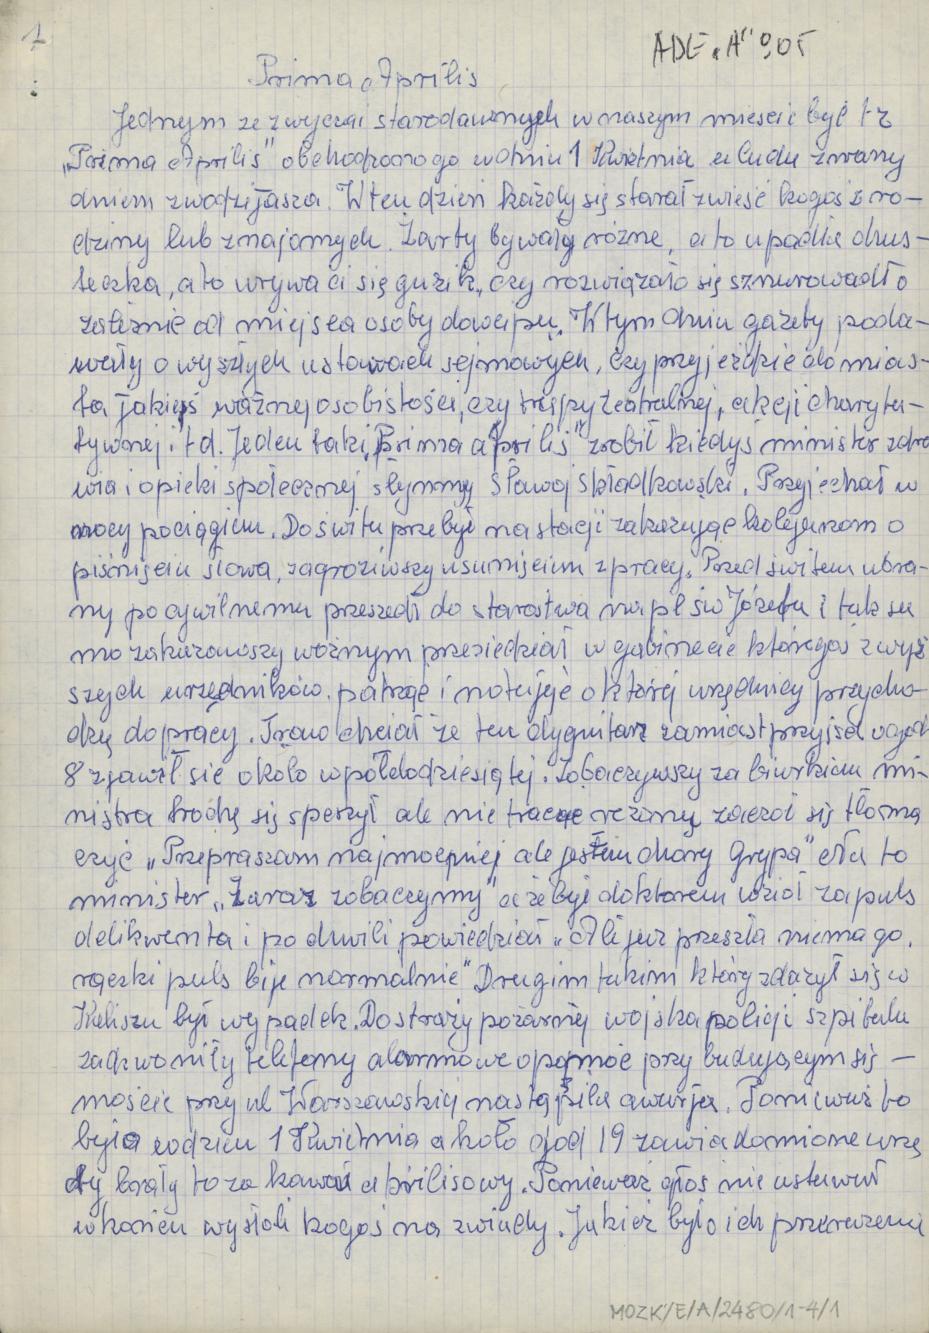 1
ADE „A" 905
Prima Aprilis
Jednym ze zwyczai starodawnych w naszym mieście był tz
„Prima Aprilis" obchodzono go w dniu 1 Kwietnia u ludu zwany
dniem zwodzijasza. W ten dzień każdy się starał zwieść kogoś z ro-
dziny lub znajomych. Żarty bywały różne, a to upadła chus-
teczka, a to urywa ci się guzik, czy rozwiązało się sznurowadło
zależnie od miejsca osoby dowcipu. W tym dniu gazety poda-
wały o wyszłych ustawach sejmowych, czy przyjeździe do mias-
ta jakiejś ważnej osobistości, czy trupy teatralnej, akcji charyta-
tywnej itd. Jeden taki „Prima Aprilis" zrobił kiedyś minister zdro
wia i opieki społecznej słynny Sławoj Składkowski. Przyjechał w
nocy pociągiem. Do świtu przebył na stacji zakazując kolejarzom o
piśnięciu słowa, zagroziwszy usunięciem z pracy. Przed świtem ubra-
ny po cywilnemu przeszedł do starostwa na pl św Józefa i tak sa
mo zakazawszy woźnym przesiedział w gabinecie któregoś z wyż
szych urzędników. patrząc i notując o której urzędnicy przycho-
dzą do pracy. Trawo chciał że ten dygnitarz zamiast przyjść o godz
8 zjawił się około w pół do dziesiątej. Zobaczywszy za biurkiem mi-
nistra trochę się speszył ale nie tracąc rezonu zaczął się tłoma
czyć „Przepraszam najmocniej ale jestem chory grypa" Na to
minister „Zaraz zobaczymy" a że był doktorem wziął za puls
delikwenta i po chwili powiedział „Ali już przeszła niema go.
rączki puls bije normalnie" Drugim takim który zdażył się w
Kaliszu był wypadek. Do straży pożarnej wojska policji szpitala
zadzwoniły telefony alarmowe o pomoc przy budującym się —
moście przy ul Warszawskiej nastąpiła awarja. Ponieważ to
było w dzień 1 Kwietnia a koło god 19 zawiadomione urzę
dy brały to za kawał aprilisowy. Ponieważ głos nie ustawał
w końcu wysłali kogoś na zwiady. Jakież było ich przerażenie
MOZK/E/A/2480/1-4/1